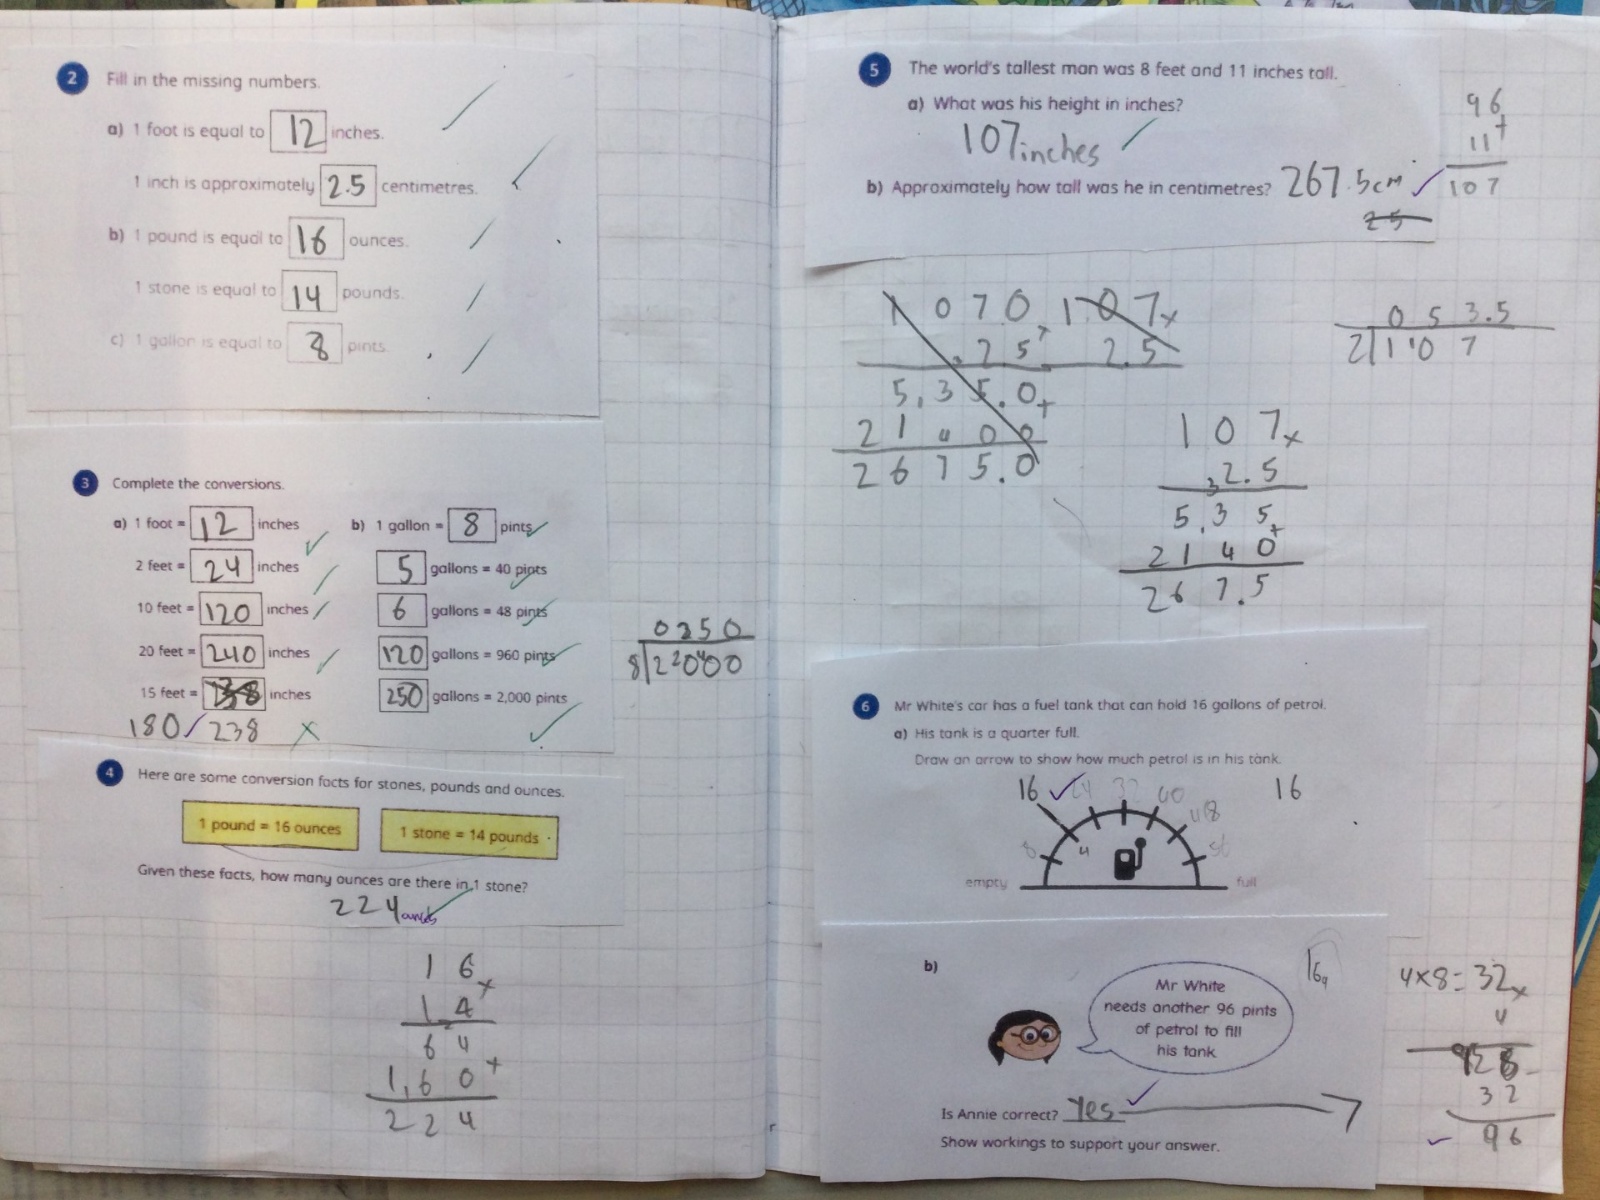 2 Fill in the missing numbers.
a) 1 foot is equal to 12 inches.
1 inch is approximately 2.5 centimetres.
b) 1 pound is equal to 16 ounces.
1 stone is equal to 14 pounds.
c) 1 gallon is equal to 8 pints.
3 Complete the conversions.
a) 1 foot = 12 inches
2 feet = 24 inches
10 feet = 120 inches
20 feet = 240 inches
15 feet = inches
180 238
b) 1 gallon = 8 pints
5 gallons = 40 pints
6 gallons = 48 pints
120 gallons = 960 pints
250 gallons = 2,000 pints
0250
8 2 2 0 4 0 0
4 Here are some conversion facts for stones, pounds and ounces.
1 pound = 16 ounces
1 stone = 14 pounds
Given these facts, how many ounces are there in 1 stone?
224 ounces
16 x
14
64
1,60 +
224
5 The world's tallest man was 8 feet and 11 inches tall.
a) What was his height in inches?
107 inches
96
11 +
107
b) Approximately how tall was he in centimetres? 267.5cm
25
1070 107 x
.25 2.5
5,35.0 +
21400
2675.0
053.5
2 1 1 0 7
107 x
32.5
5,35 +
2140
267.5
6 Mr White's car has a fuel tank that can hold 16 gallons of petrol.
a) His tank is a quarter full.
Draw an arrow to show how much petrol is in his tank.
16 24 32 40 16
48
8 4 56
empty full
b)
Mr White
needs another 96 pints
of petrol to fill
his tank
16
4x8=32 x
4
128 -
32
96
Is Annie correct? Yes
Show workings to support your answer.